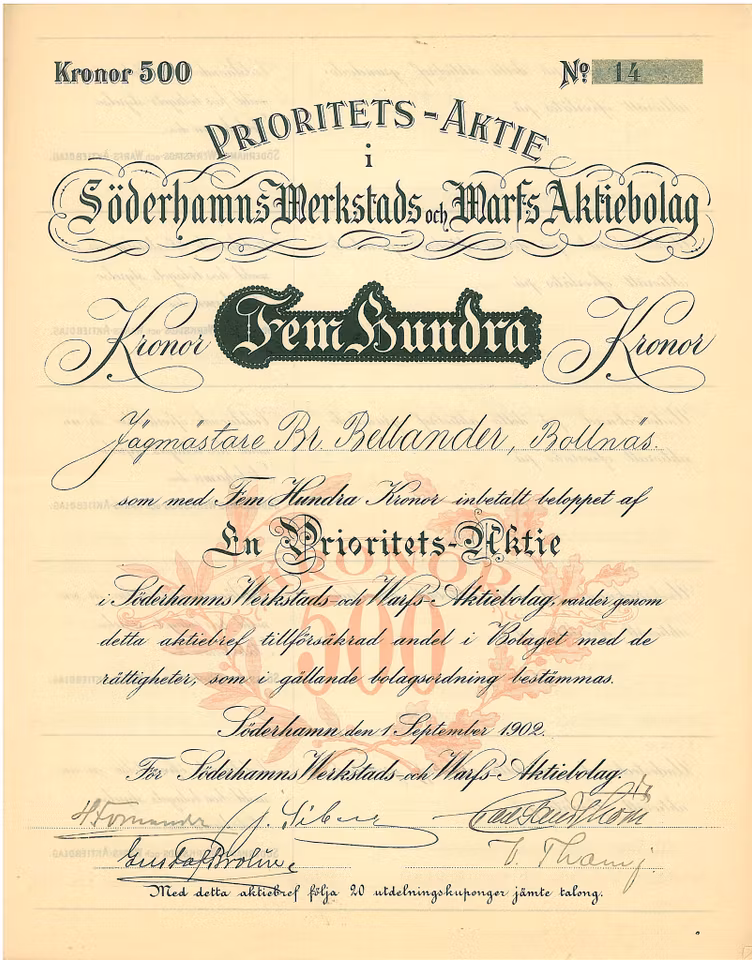 Kronor 500
No. 14
PRIORITETS-AKTIE
i
Söderhamns Werkstads och Warfs Aktiebolag
Kronor Fem Hundra Kronor
Jägmästare Br. Bellander, Bollnäs.
som med Fem Hundra Kronor inbetalt beloppet af
En Prioritets-Aktie
KRONOR
500
i Söderhamns Werkstads- och Warfs-Aktiebolag, varder genom
detta aktiebref tillförsäkrad andel i Bolaget med de
rättigheter, som i gällande bolagsordning bestämmas.
Söderhamn den 1 September 1902.
För Söderhamns Werkstads- och Warfs-Aktiebolag.
Gustaf
Med detta aktiebref följa 20 utdelningskuponger jämte talong.